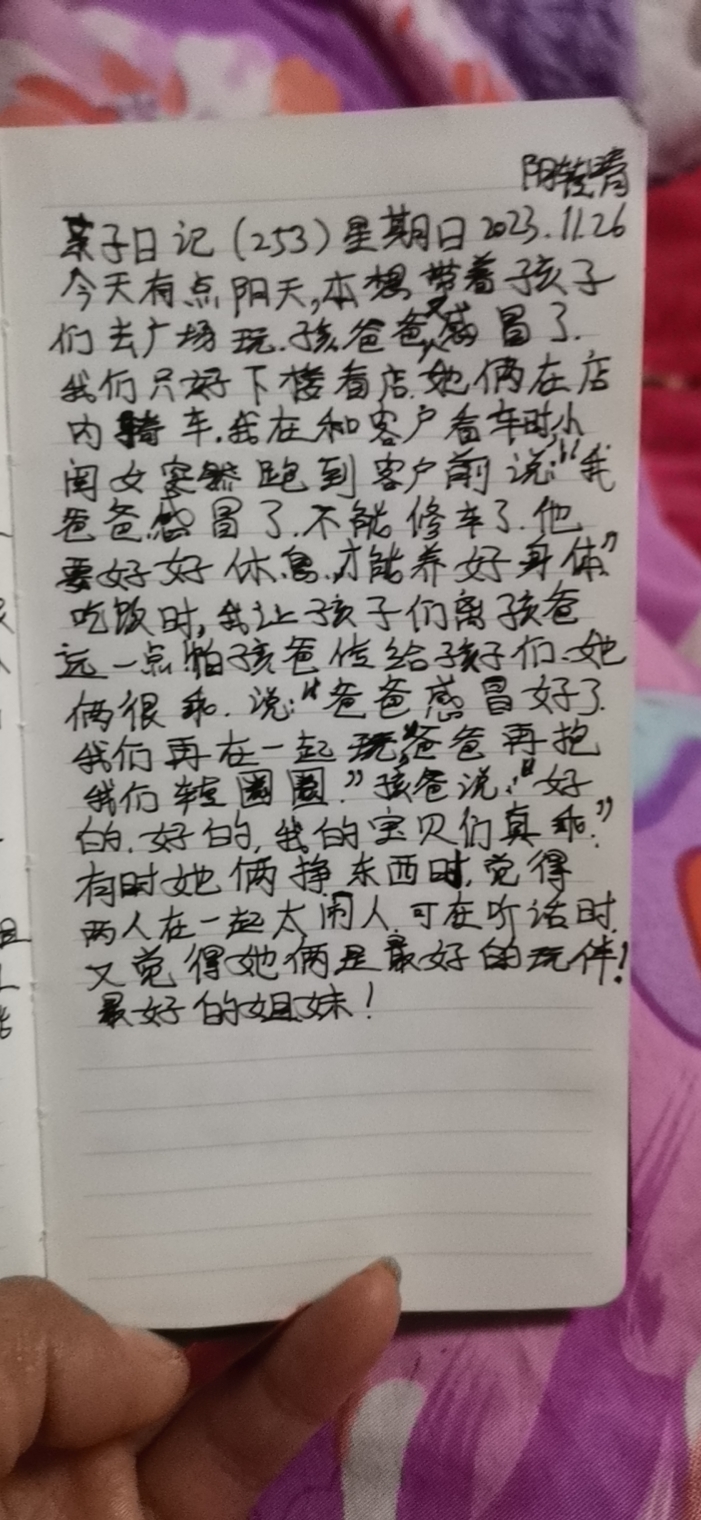 阴转晴
亲子日记(253)星期日2023.11.26
今天有点阴天,本想带着孩子
们去广场玩.孩爸爸又感冒了.
我们只好下楼看店.她俩在店
内骑车.我在和客户看车时,小
闺女突然跑到客户前说:“我
爸爸感冒了.不能修车了.他
要好好休息.才能养好身体”
吃饭时,我让孩子们离孩爸
远一点怕孩爸传给孩子们.她
俩很乖.说:“爸爸感冒好了.
我们再在一起玩,爸爸再抱
我们转圈圈.”孩爸说:“好
的.好的,我的宝贝们真乖.”
有时她俩挣东西时,觉得
两人在一起太闹人.可在听话时.
又觉得她俩是最好的玩伴!
最好的姐妹!